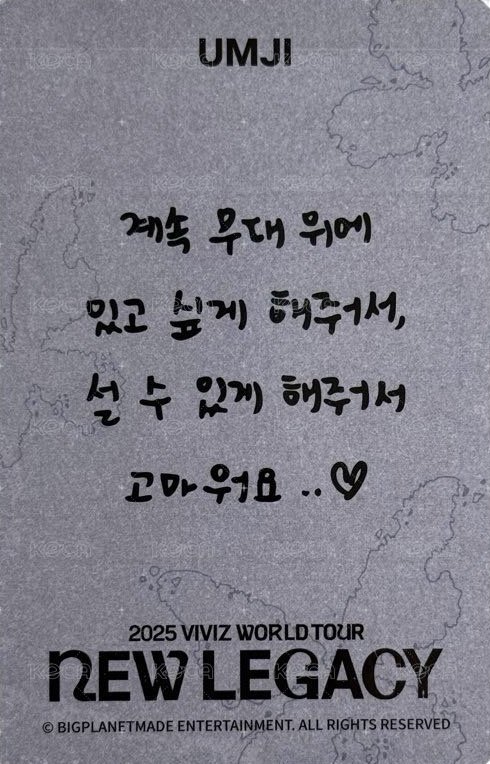 UMJI
계속 무대 위에
있고 싶게 해주셔서,
설 수 있게 해주셔서
고마워요 ..♡
2025 VIVIZ WORLD TOUR
NEW LEGACY
© BIGPLANETMADE ENTERTAINMENT. ALL RIGHTS RESERVED